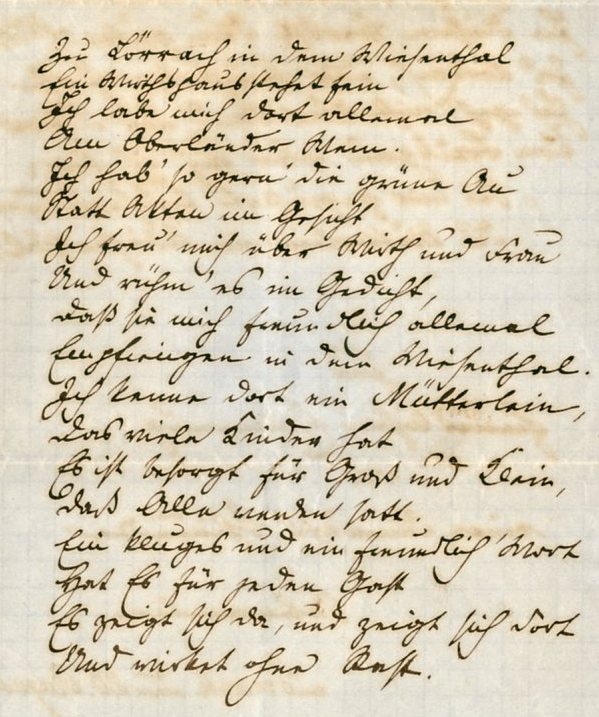 Zu Lörrach in dem Wiesenthal
Ein Wirthshaus stehet fein
Ich labe mich dort allemal
Am Oberländer Wein.
Ich hab' so gern' die grüne Au
Statt Akten im Gesicht
Ich freu' mich über Wirth und Frau
Und rühm' es im Gedicht,
Daß sie mich freundlich allemal
Empfiengen in dem Wiesenthal.
Ich kenne dort ein Mütterlein,
Das viele Kinder hat
Es ist besorgt für Groß und Klein,
Daß Alle werden satt.
Ein kluges und ein freundlich' Wort
Hat Es für jeden Gast
Es zeigt sich da, und zeigt sich dort
Und wirket ohne Rast.